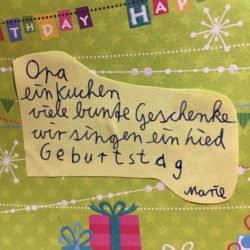 THDAY HA
Opa
ein Kuchen
viele bunte Geschenke
wir singen ein Lied
Geburtstag
Marie